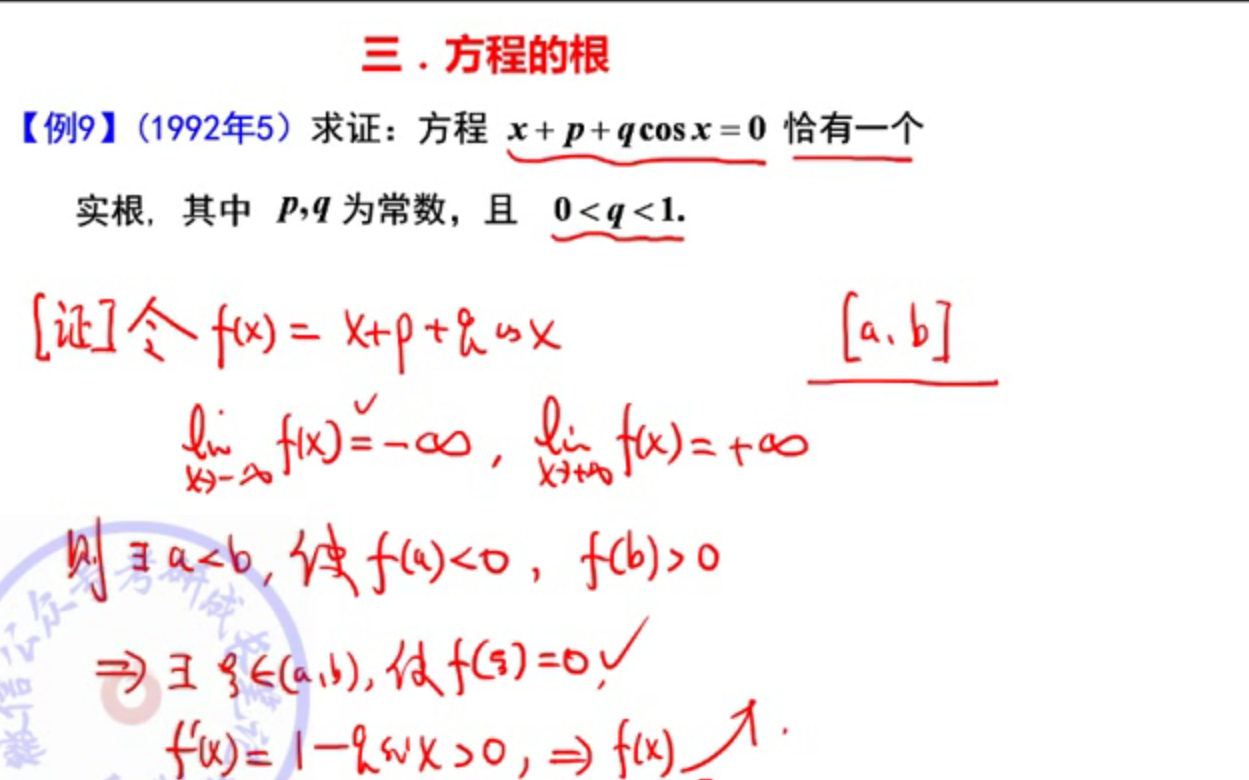 三．方程的根
【例9】（1992年5）求证：方程 x + p + q cos x = 0 恰有一个
实根, 其中 p,q 为常数，且 0 < q < 1.
[证] 令 f(x) = x+p+q cos x [a, b]
lim x→-∞ f(x) = -∞ , lim x→+∞ f(x) = +∞
则 ∃ a<b, 使 f(a)<0 , f(b)>0
⇒ ∃ ξ∈(a,b), 使 f(ξ)=0,
f'(x) = 1-q sin x >0 , ⇒ f(x) ↗ .
微信公众号考研成